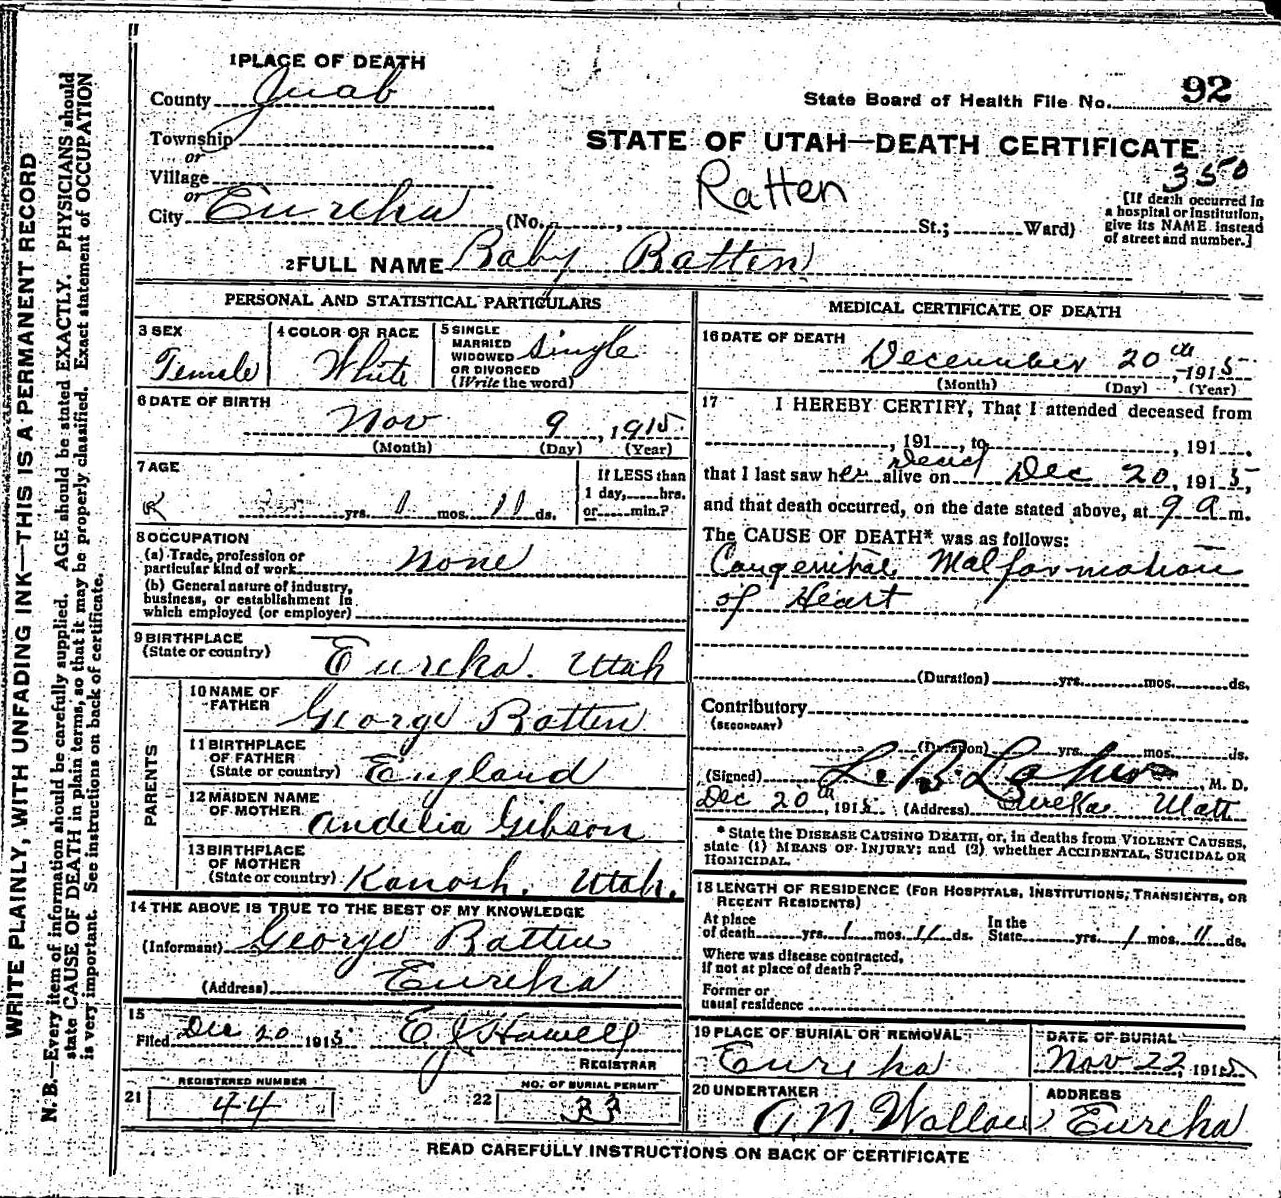 1 PLACE OF DEATH
County Juab
State Board of Health File No. 92
Township
or
STATE OF UTAH—DEATH CERTIFICATE
350
Village
or
Ratten
City Eureka (No. , St.; Ward)
[If death occurred in
a hospital or institution,
give its NAME instead
of street and number.]
2 FULL NAME Baby Ratten
PERSONAL AND STATISTICAL PARTICULARS
3 SEX
Female
4 COLOR OR RACE
White
5 SINGLE
MARRIED
WIDOWED
OR DIVORCED
(Write the word)
Single
6 DATE OF BIRTH
Nov 9, 1915
(Month) (Day) (Year)
7 AGE
yrs. 1 mos. 11 ds.
If LESS than
1 day, hrs.
or min.?
8 OCCUPATION
(a) Trade, profession or
particular kind of work None
(b) General nature of industry,
business, or establishment in
which employed (or employer)
9 BIRTHPLACE
(State or country) Eureka. Utah
PARENTS
10 NAME OF
FATHER George Ratten
11 BIRTHPLACE
OF FATHER
(State or country) England
12 MAIDEN NAME
OF MOTHER Andelia Gibson
13 BIRTHPLACE
OF MOTHER
(State or country) Kanosh. Utah.
14 THE ABOVE IS TRUE TO THE BEST OF MY KNOWLEDGE
(Informant) George Ratten
(Address) Eureka
15
Filed Dec 20 1915 E J Howell
REGISTRAR
21 REGISTERED NUMBER
44
22 NO. OF BURIAL PERMIT
33
MEDICAL CERTIFICATE OF DEATH
16 DATE OF DEATH
December 20th, 1915
(Month) (Day) (Year)
17 I HEREBY CERTIFY, That I attended deceased from
, 191 , to , 191 .
that I last saw her alive on Dead Dec 20, 1915,
and that death occurred, on the date stated above, at 9 a m.
The CAUSE OF DEATH* was as follows:
Congenital Malformation
of Heart
(Duration) yrs. mos. ds.
Contributory
(SECONDARY)
(Duration) yrs. mos. ds.
(Signed) , M. D.
Dec 20th, 1915 (Address) Eureka Utah
* State the DISEASE CAUSING DEATH, or, in deaths from VIOLENT CAUSES,
state (1) MEANS OF INJURY; and (2) whether ACCIDENTAL, SUICIDAL OR
HOMICIDAL.
18 LENGTH OF RESIDENCE (FOR HOSPITALS, INSTITUTIONS, TRANSIENTS, OR
RECENT RESIDENTS)
At place
of death yrs. 1 mos. 11 ds.
In the
State yrs. 1 mos. 11 ds.
Where was disease contracted,
if not at place of death?
Former or
usual residence
19 PLACE OF BURIAL OR REMOVAL
Eureka
DATE OF BURIAL
Nov 22, 1915
20 UNDERTAKER
A. N. Wallace
ADDRESS
Eureka
READ CAREFULLY INSTRUCTIONS ON BACK OF CERTIFICATE
WRITE PLAINLY, WITH UNFADING INK—THIS IS A PERMANENT RECORD
N. B.—Every item of information should be carefully supplied. AGE should be stated EXACTLY. PHYSICIANS should
state CAUSE OF DEATH in plain terms, so that it may be properly classified. Exact statement of OCCUPATION
is very important. See instructions on back of certificate.